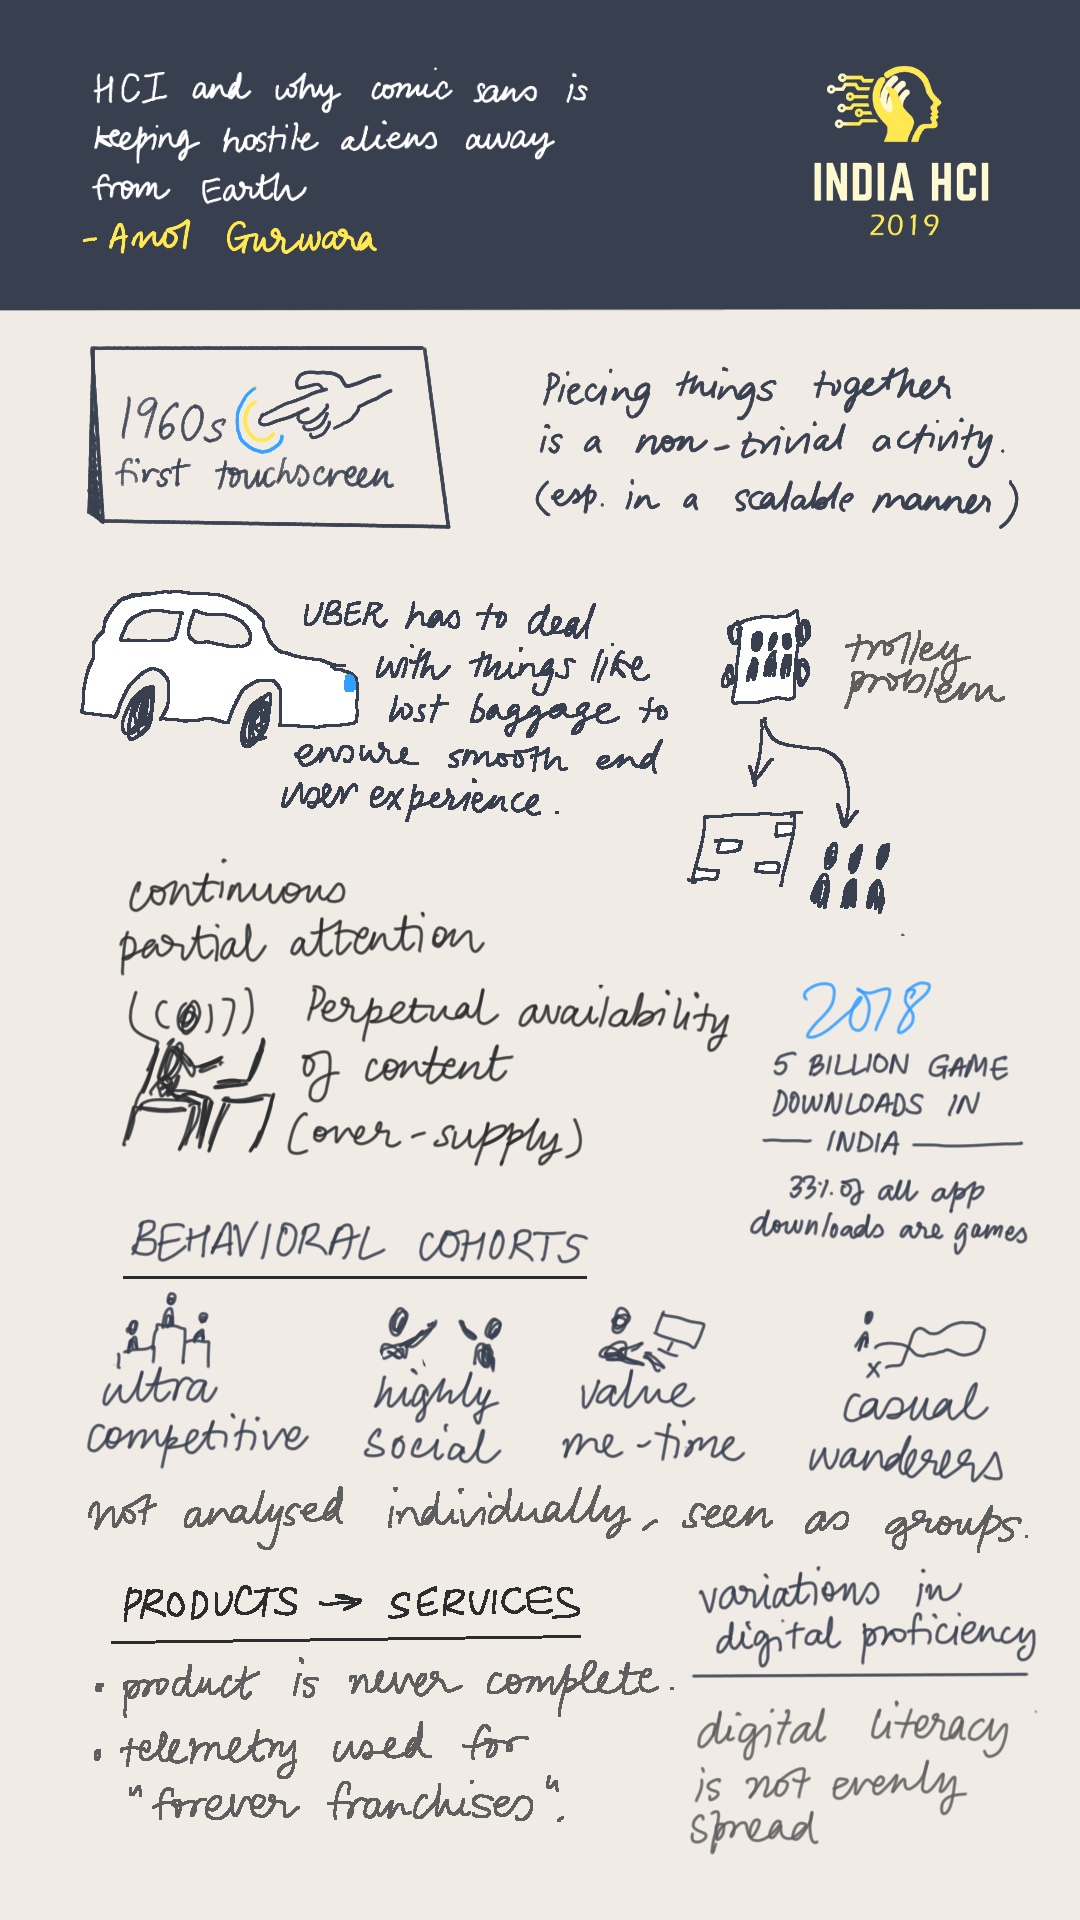 HCI and why comic sans is
keeping hostile aliens away
from Earth
- Anol Gurwara
INDIA HCI
2019
1960s
first touchscreen
Piecing things together
is a non-trivial activity.
(esp. in a scalable manner)
UBER has to deal
with things like
lost baggage to
ensure smooth end
user experience.
trolley
problem
continuous
partial attention
Perpetual availability
of content
(over-supply)
2018
5 BILLION GAME
DOWNLOADS IN
INDIA
33% of all app
downloads are games
BEHAVIORAL COHORTS
ultra
competitive
highly
social
value
me-time
casual
wanderers
not analysed individually, seen as groups.
PRODUCTS → SERVICES
• product is never complete.
• telemetry used for
"forever franchises".
variations in
digital proficiency
digital literacy
is not evenly
spread